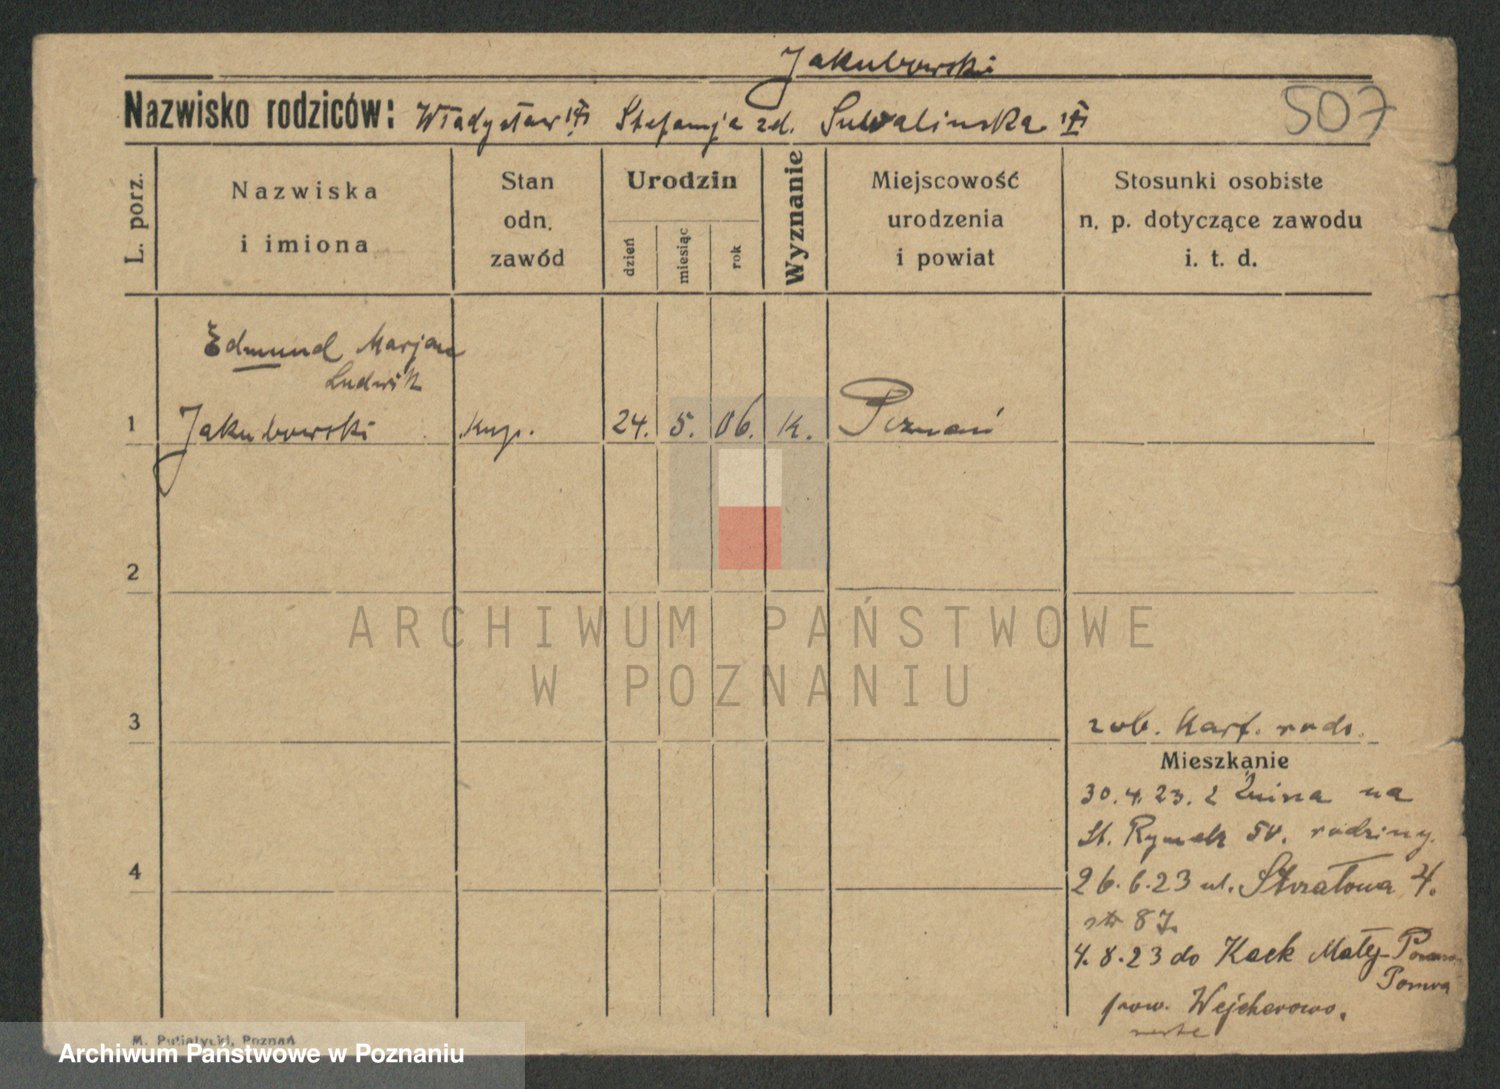 Jakubowski
Nazwisko rodziców: Władysław Stefanja zd. Suwalinska
507
L. porz.
Nazwiska
i imiona
Stan
odn.
zawód
Urodzin
dzień
miesiąc
rok
Wyznanie
Miejscowość
urodzenia
i powiat
Stosunki osobiste
n. p. dotyczące zawodu
i. t. d.
Edmund Marjan
Ludwik
1 Jakubowski kup. 24. 5. 06. k. Poznań
2
3
zob. Kart. rodz.
Mieszkanie
30.4.23. z Żnina na
St. Rynek 50. rodziny.
4
26.6.23 ul. Strzałowa 4.
str 87.
4.8.23 do Kack Mały
pow. Wejcherowo.
M. Putiatycki, Poznań
ARCHIWUM PAŃSTWOWE
W POZNANIU
Archiwum Państwowe w Poznaniu